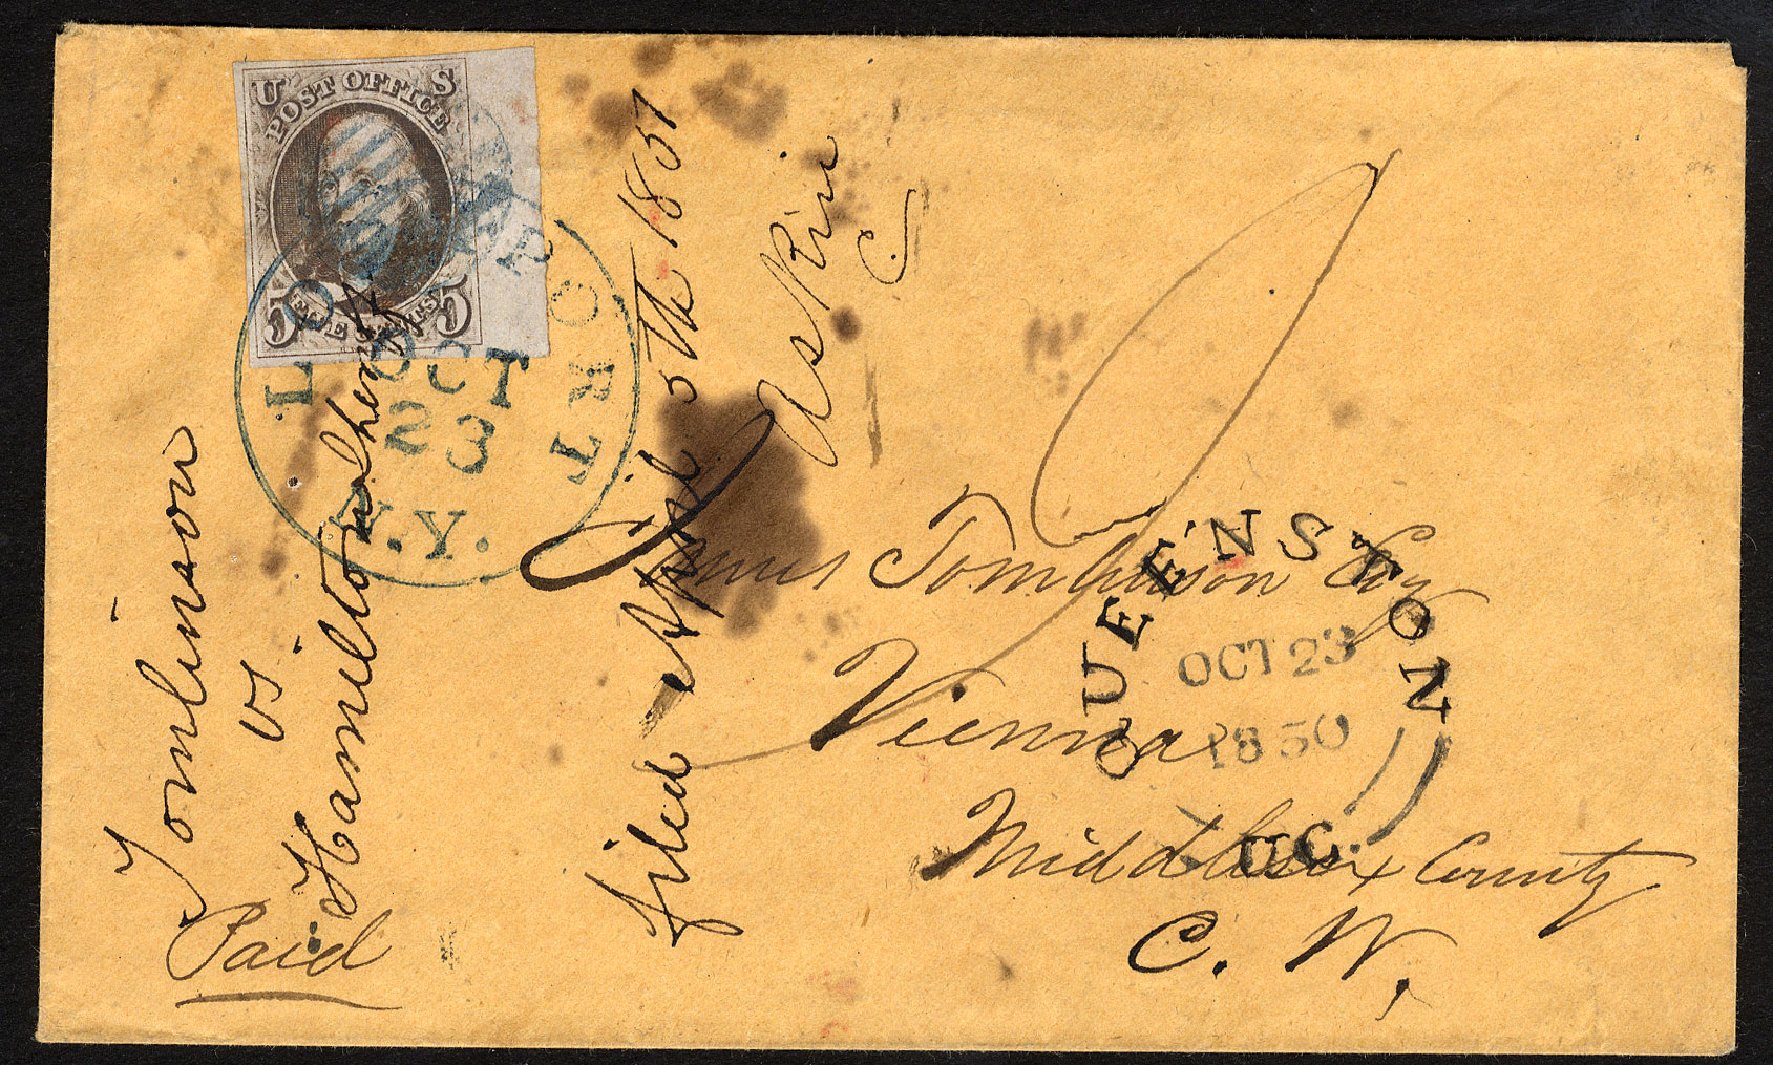 U S
POST OFFICE
5 FIVE CENTS 5
LOCKPORT
OCT
23
N.Y.
Tomlinson
vs.
Hamilton
Paid
filed April 5th 1851
Askin
C
James Tomlinson Esq
Vienna
Middlesex County
C. W.
QUEENSTON
OCT 23
1850
UC.